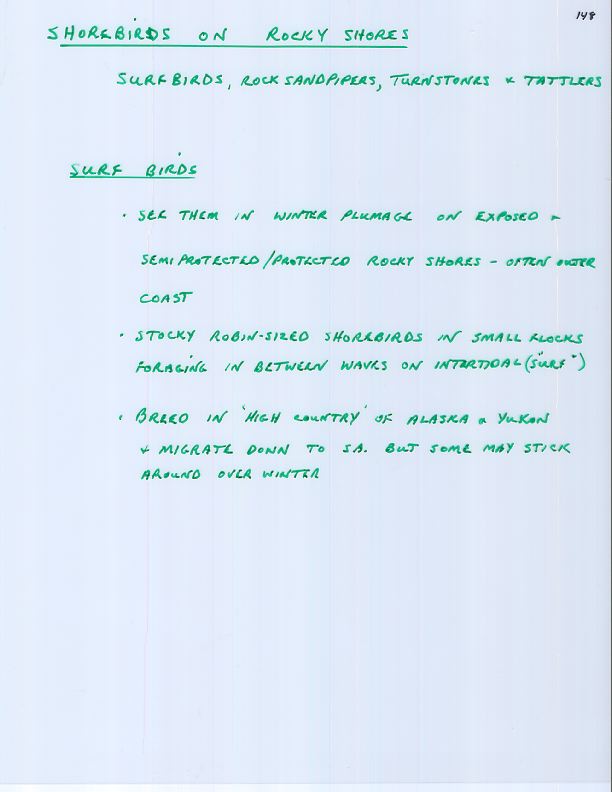 148
SHOREBIRDS ON ROCKY SHORES
SURFBIRDS, ROCK SANDPIPERS, TURNSTONES & TATTLERS
SURF BIRDS
• SEE THEM IN WINTER PLUMAGE ON EXPOSED &
SEMIPROTECTED/PROTECTED ROCKY SHORES - OFTEN OUTER
COAST
• STOCKY ROBIN-SIZED SHOREBIRDS IN SMALL FLOCKS
FORAGING IN BETWEEN WAVES ON INTERTIDAL ("SURF")
• BREED IN 'HIGH COUNTRY' OF ALASKA & YUKON
& MIGRATE DOWN TO SA. BUT SOME MAY STICK
AROUND OVER WINTER